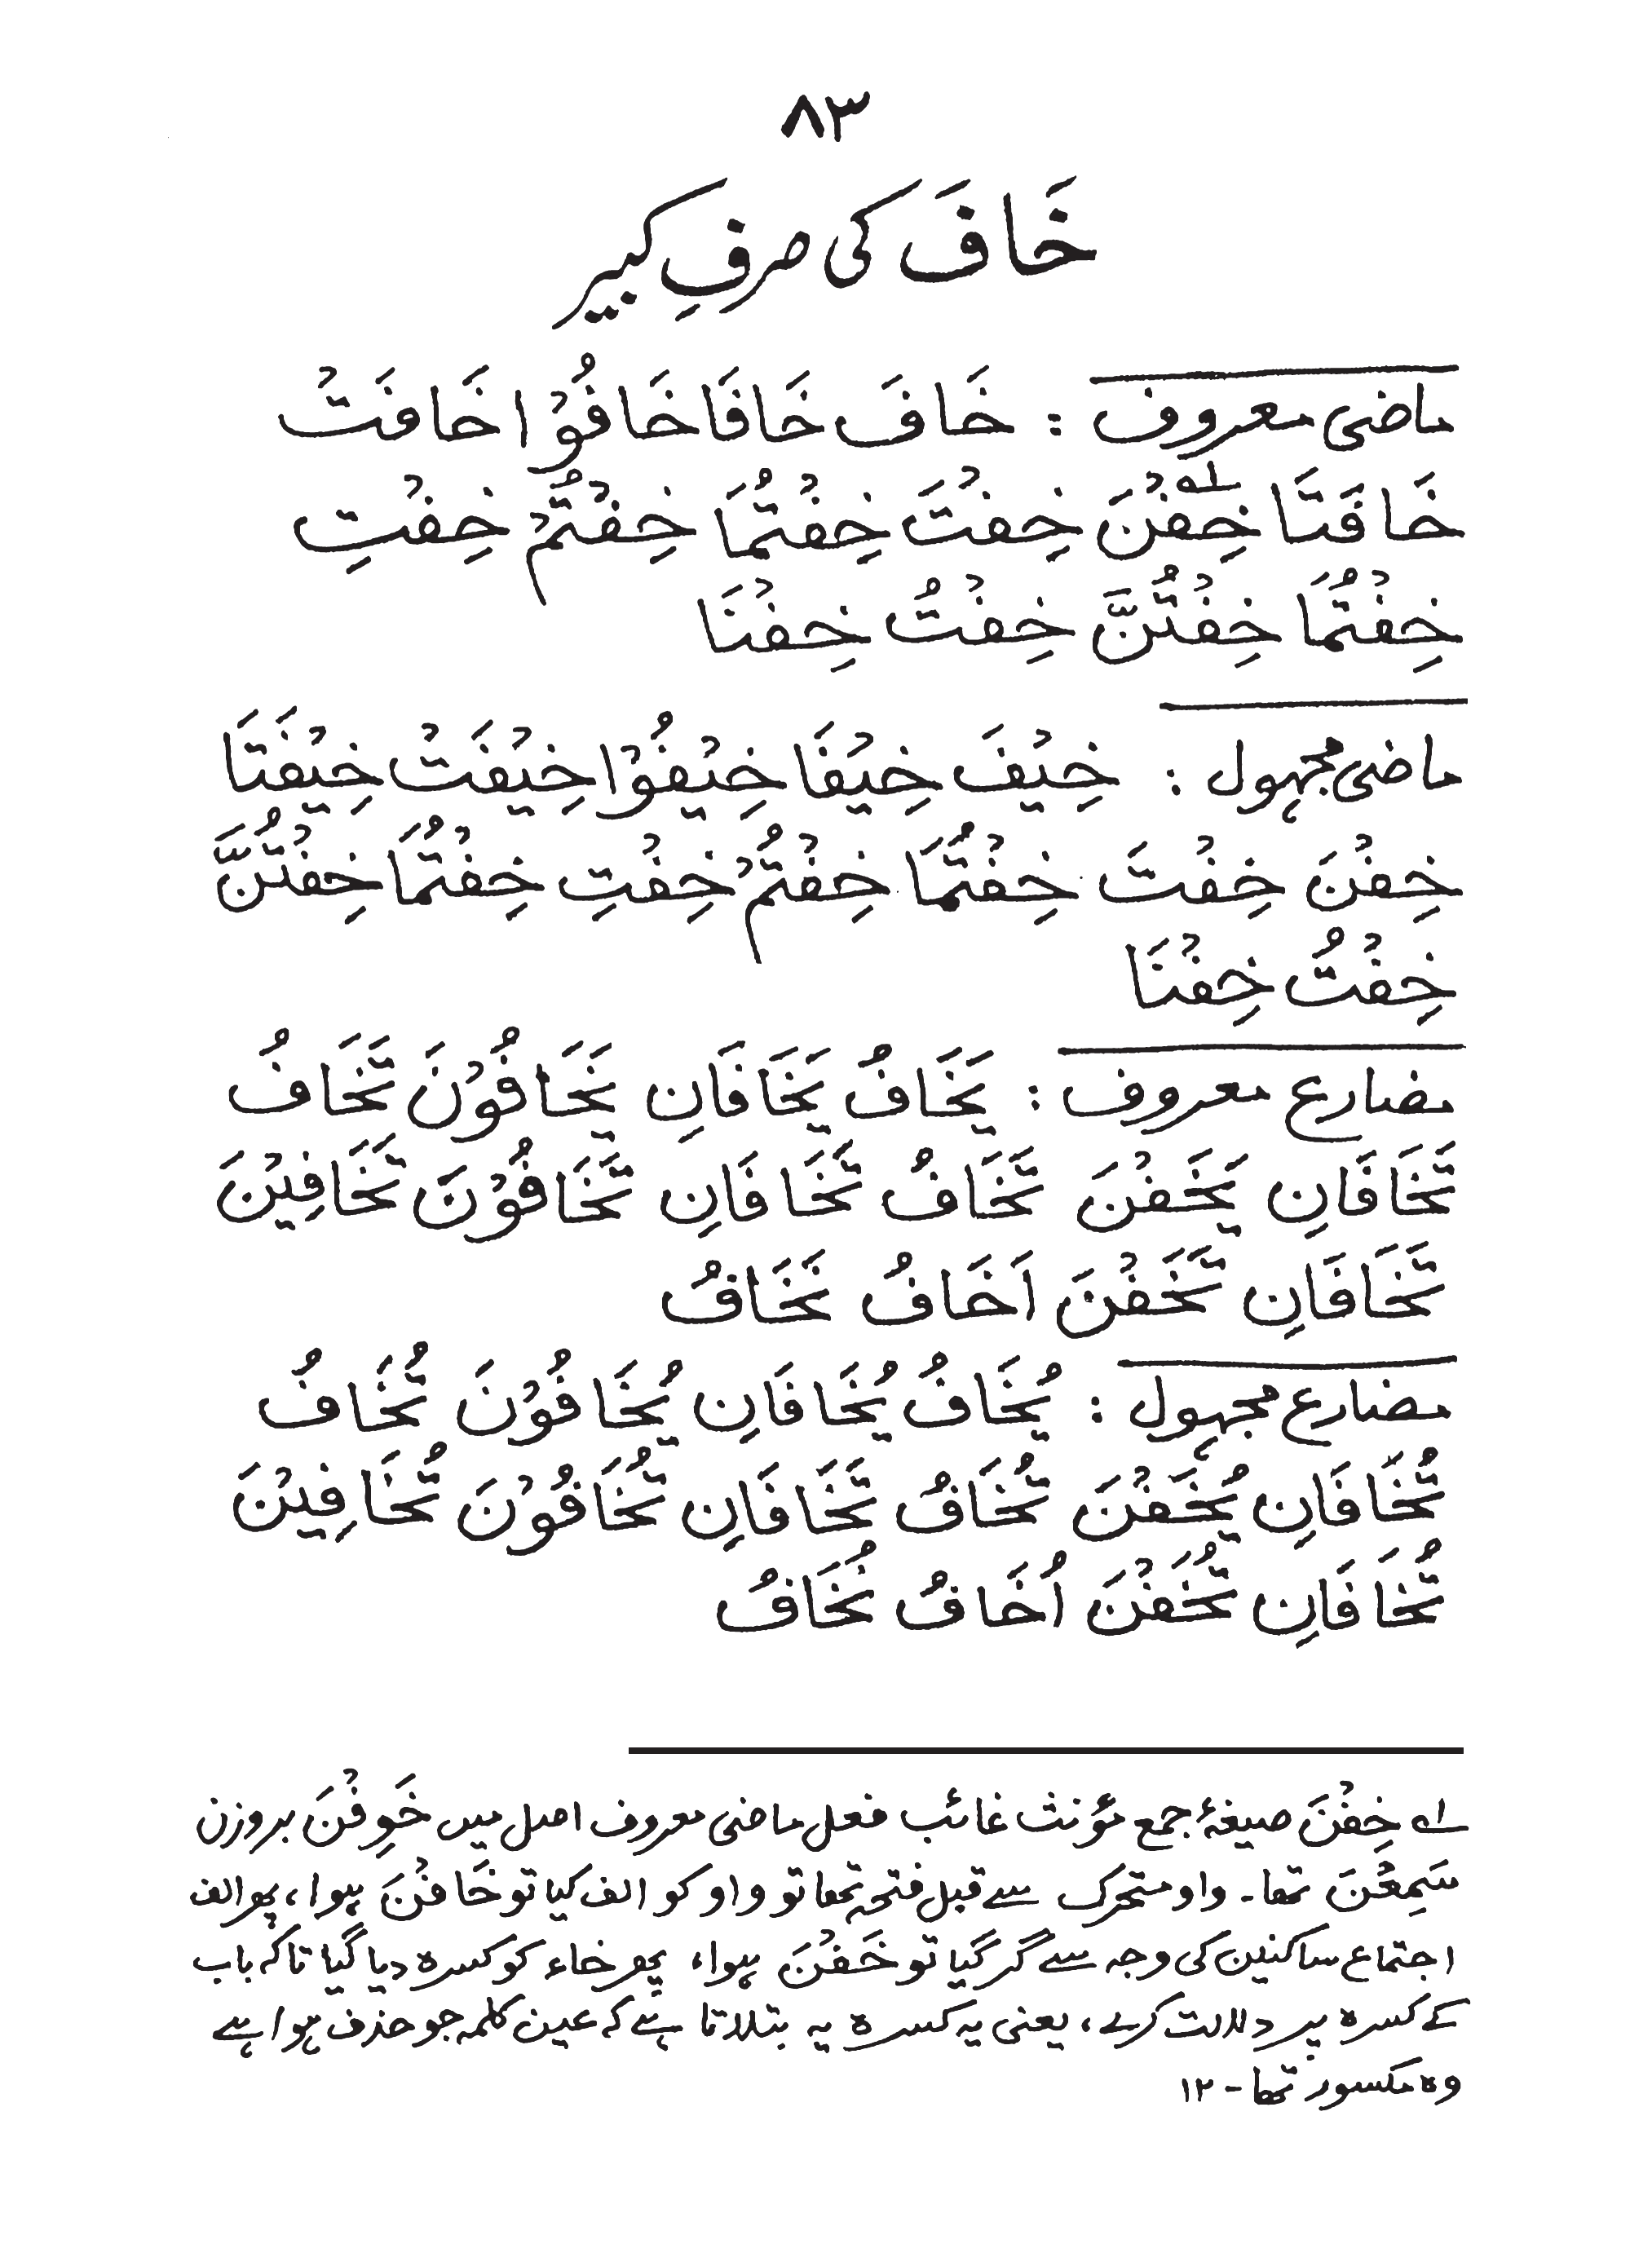 ۸۳
خَافَ کی صرفِ کبیر
ماضی معروف : خَافَ خَافَا خَافُوْا خَافَتْ
خَافَتَا خِفْنَ لہ خِفْتَ خِفْتُمَا خِفْتُمْ خِفْتِ
خِفْتُمَا خِفْتُنَّ خِفْتُ خِفْنَا
ماضی مجہول : خِيْفَ خِيْفَا خِيْفُوْا خِيْفَتْ خِيْفَتَا
خِفْنَ خِفْتَ خِفْتُمَا خِفْتُمْ خِفْتِ خِفْتُمَا خِفْتُنَّ
خِفْتُ خِفْنَا
مضارع معروف : يَخَافُ يَخَافَانِ يَخَافُوْنَ تَخَافُ
تَخَافَانِ يَخَفْنَ تَخَافُ تَخَافَانِ تَخَافُوْنَ تَخَافِيْنَ
تَخَافَانِ تَخَفْنَ اَخَافُ نَخَافُ
مضارع مجہول : يُخَافُ يُخَافَانِ يُخَافُوْنَ تُخَافُ
تُخَافَانِ يُخَفْنَ تُخَافُ تَخَافَانِ تُخَافُوْنَ تُخَافِيْنَ
تُخَافَانِ تُخَفْنَ اُخَافُ نُخَافُ
لہ خِفْنَ صیغۂ جمع مؤنث غائب فعل ماضی معروف اصل میں خَوِفْنَ بروزن
سَمِعْنَ تھا۔ واو متحرک سے قبل فتحہ تھا تو واو کو الف کیا تو خَافْنَ ہوا، پھر الف
اجتماع ساکنین کی وجہ سے گر گیا تو خَفْنَ ہوا، پھر خاء کو کسرہ دیا گیا تاکہ باب
کے کسرہ پر دلالت کرے، یعنی یہ کسرہ یہ بتلاتا ہے کہ عین کلمہ جو حذف ہوا ہے
وہ مکسور تھا - ۱۲